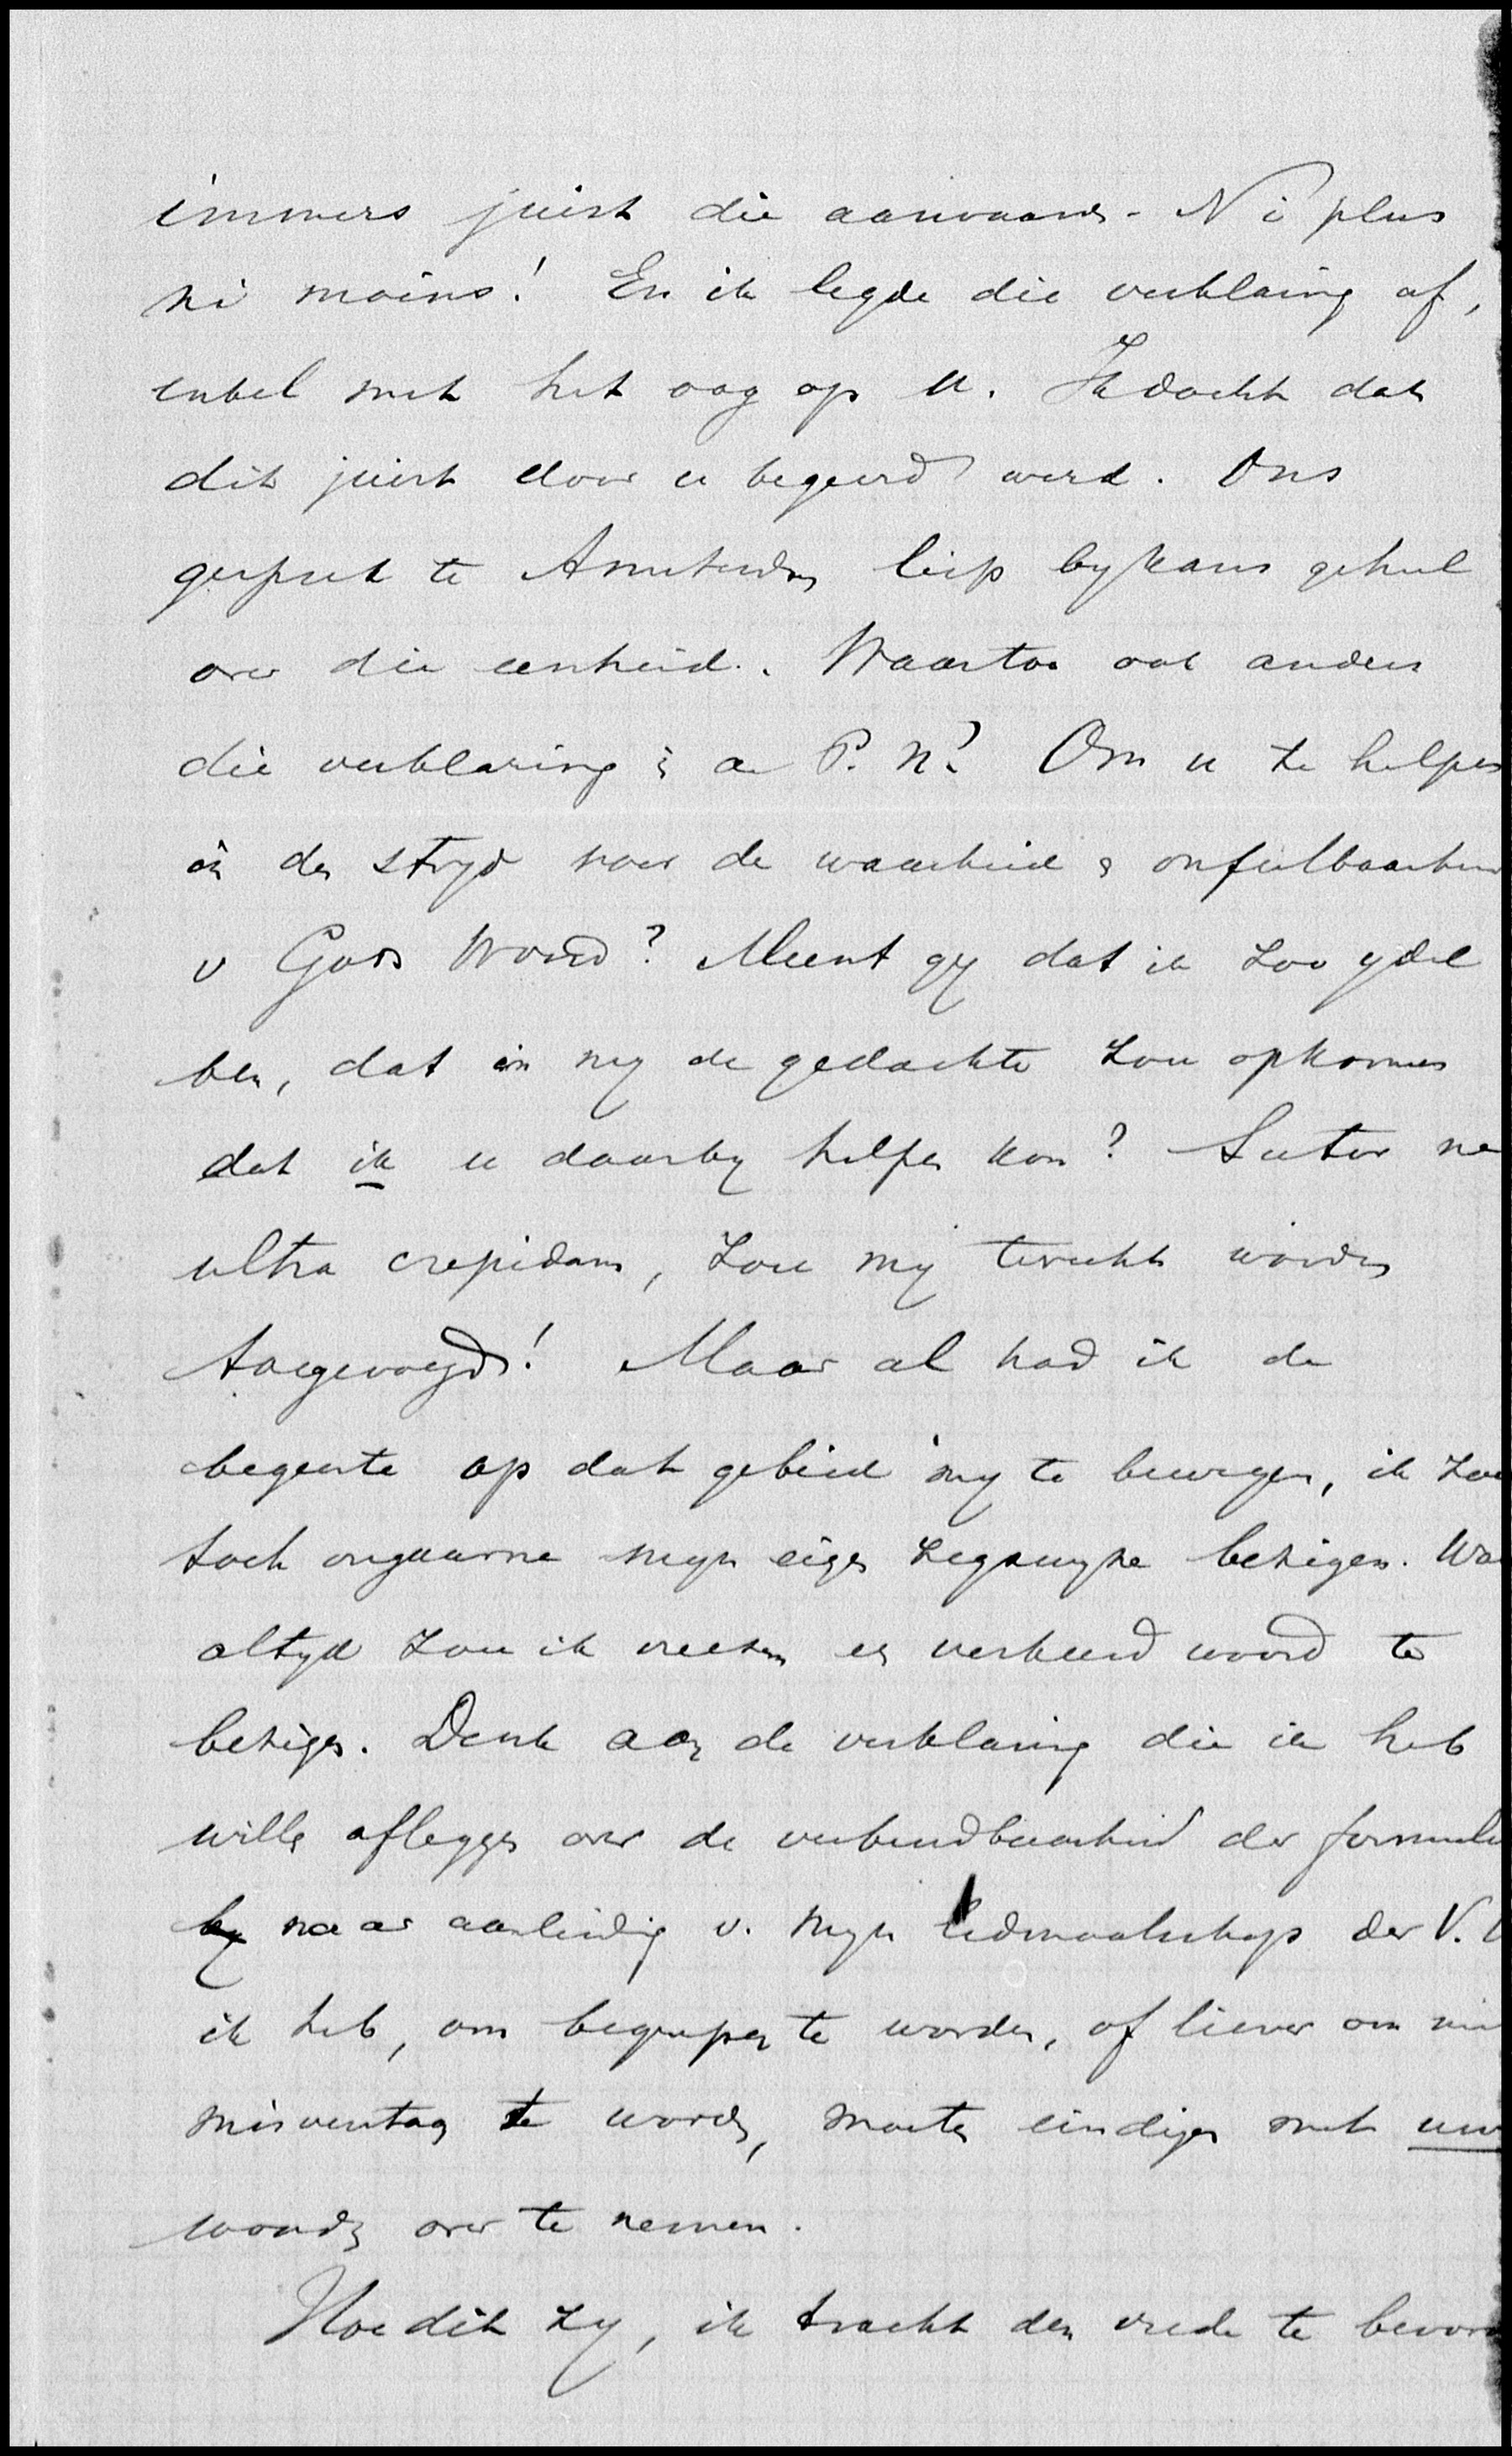 immers juist die aanvaard. Ni plus
ni moins! En ik legde die verklaring af,
enkel met het oog op u. Ik dacht dat
dit juist door u begeerd werd. Ons
gesprek te Amsterdam liep bykans geheel
over die eenheid. Waartoe ook anders
die verklaring i a P. n? Om u te helpen
in den stryd voor de waarheid & onfeilbaarheid
v Gods Woord? Meent gy dat ik zoo ydel
ben, dat in my de gedachte zou opkomen
dat ik u daarby helpen kon? Sutor ne
ultra crepidam, zou my terecht worden
toegevoegd! Maar al had ik de
begeerte op dat gebied my te bewegen, ik zou
toch ongaarne myn eigen zegswyze bezigen. Wa
altyd zou ik vreezen een verkeerd woord te
bezigen. Denk aan de verklaring die ik heb
willen afleggen over de verbindbaarheid der formulie
by naar aanleiding v. myn lidmaatschap der V. U
ik heb, om begrepen te worden, of liever om ni
misverstaan te worden, moeten eindigen met uw
woorden over te nemen.
Hoe dit zy, ik tracht den vrede te bevord